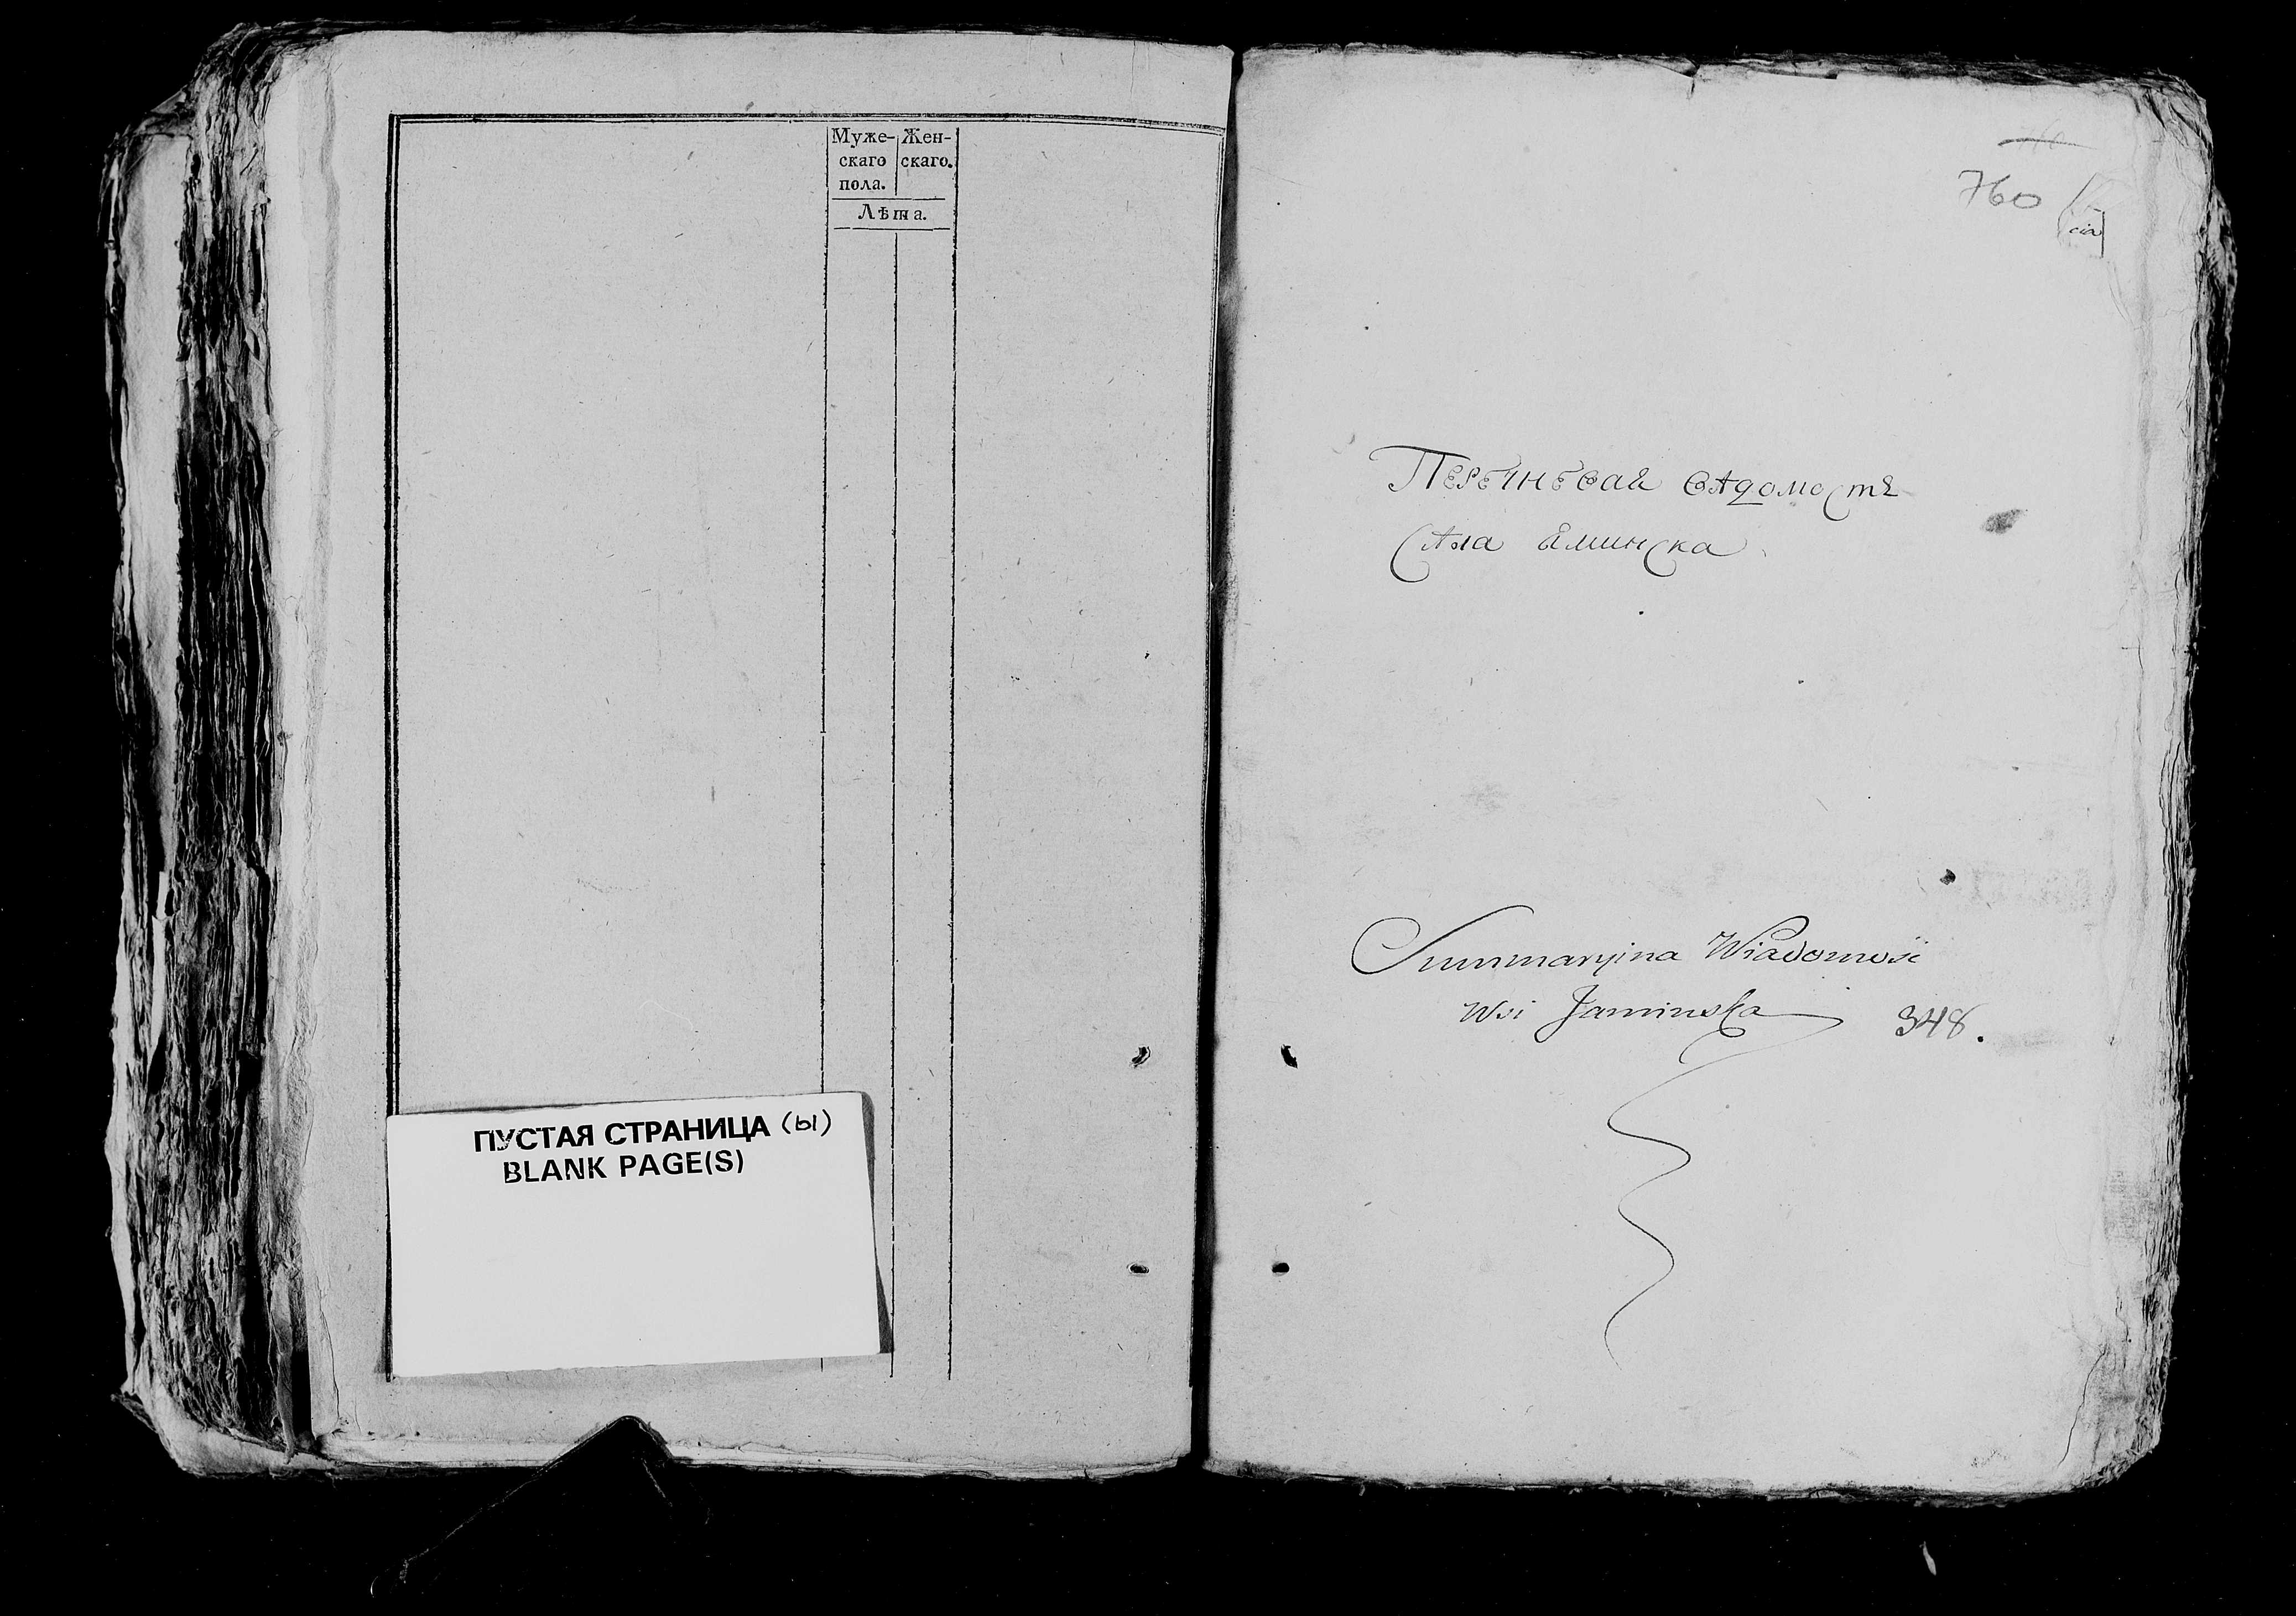 Муже- Жен-
скаго скаго.
пола.
Лѣта.
ПУСТАЯ СТРАНИЦА (ы)
BLANK PAGE(S)
760
Перечневая вѣдомость
сѣла яминска
Summaryina Wiadomość
Wsi Jaminska 348.